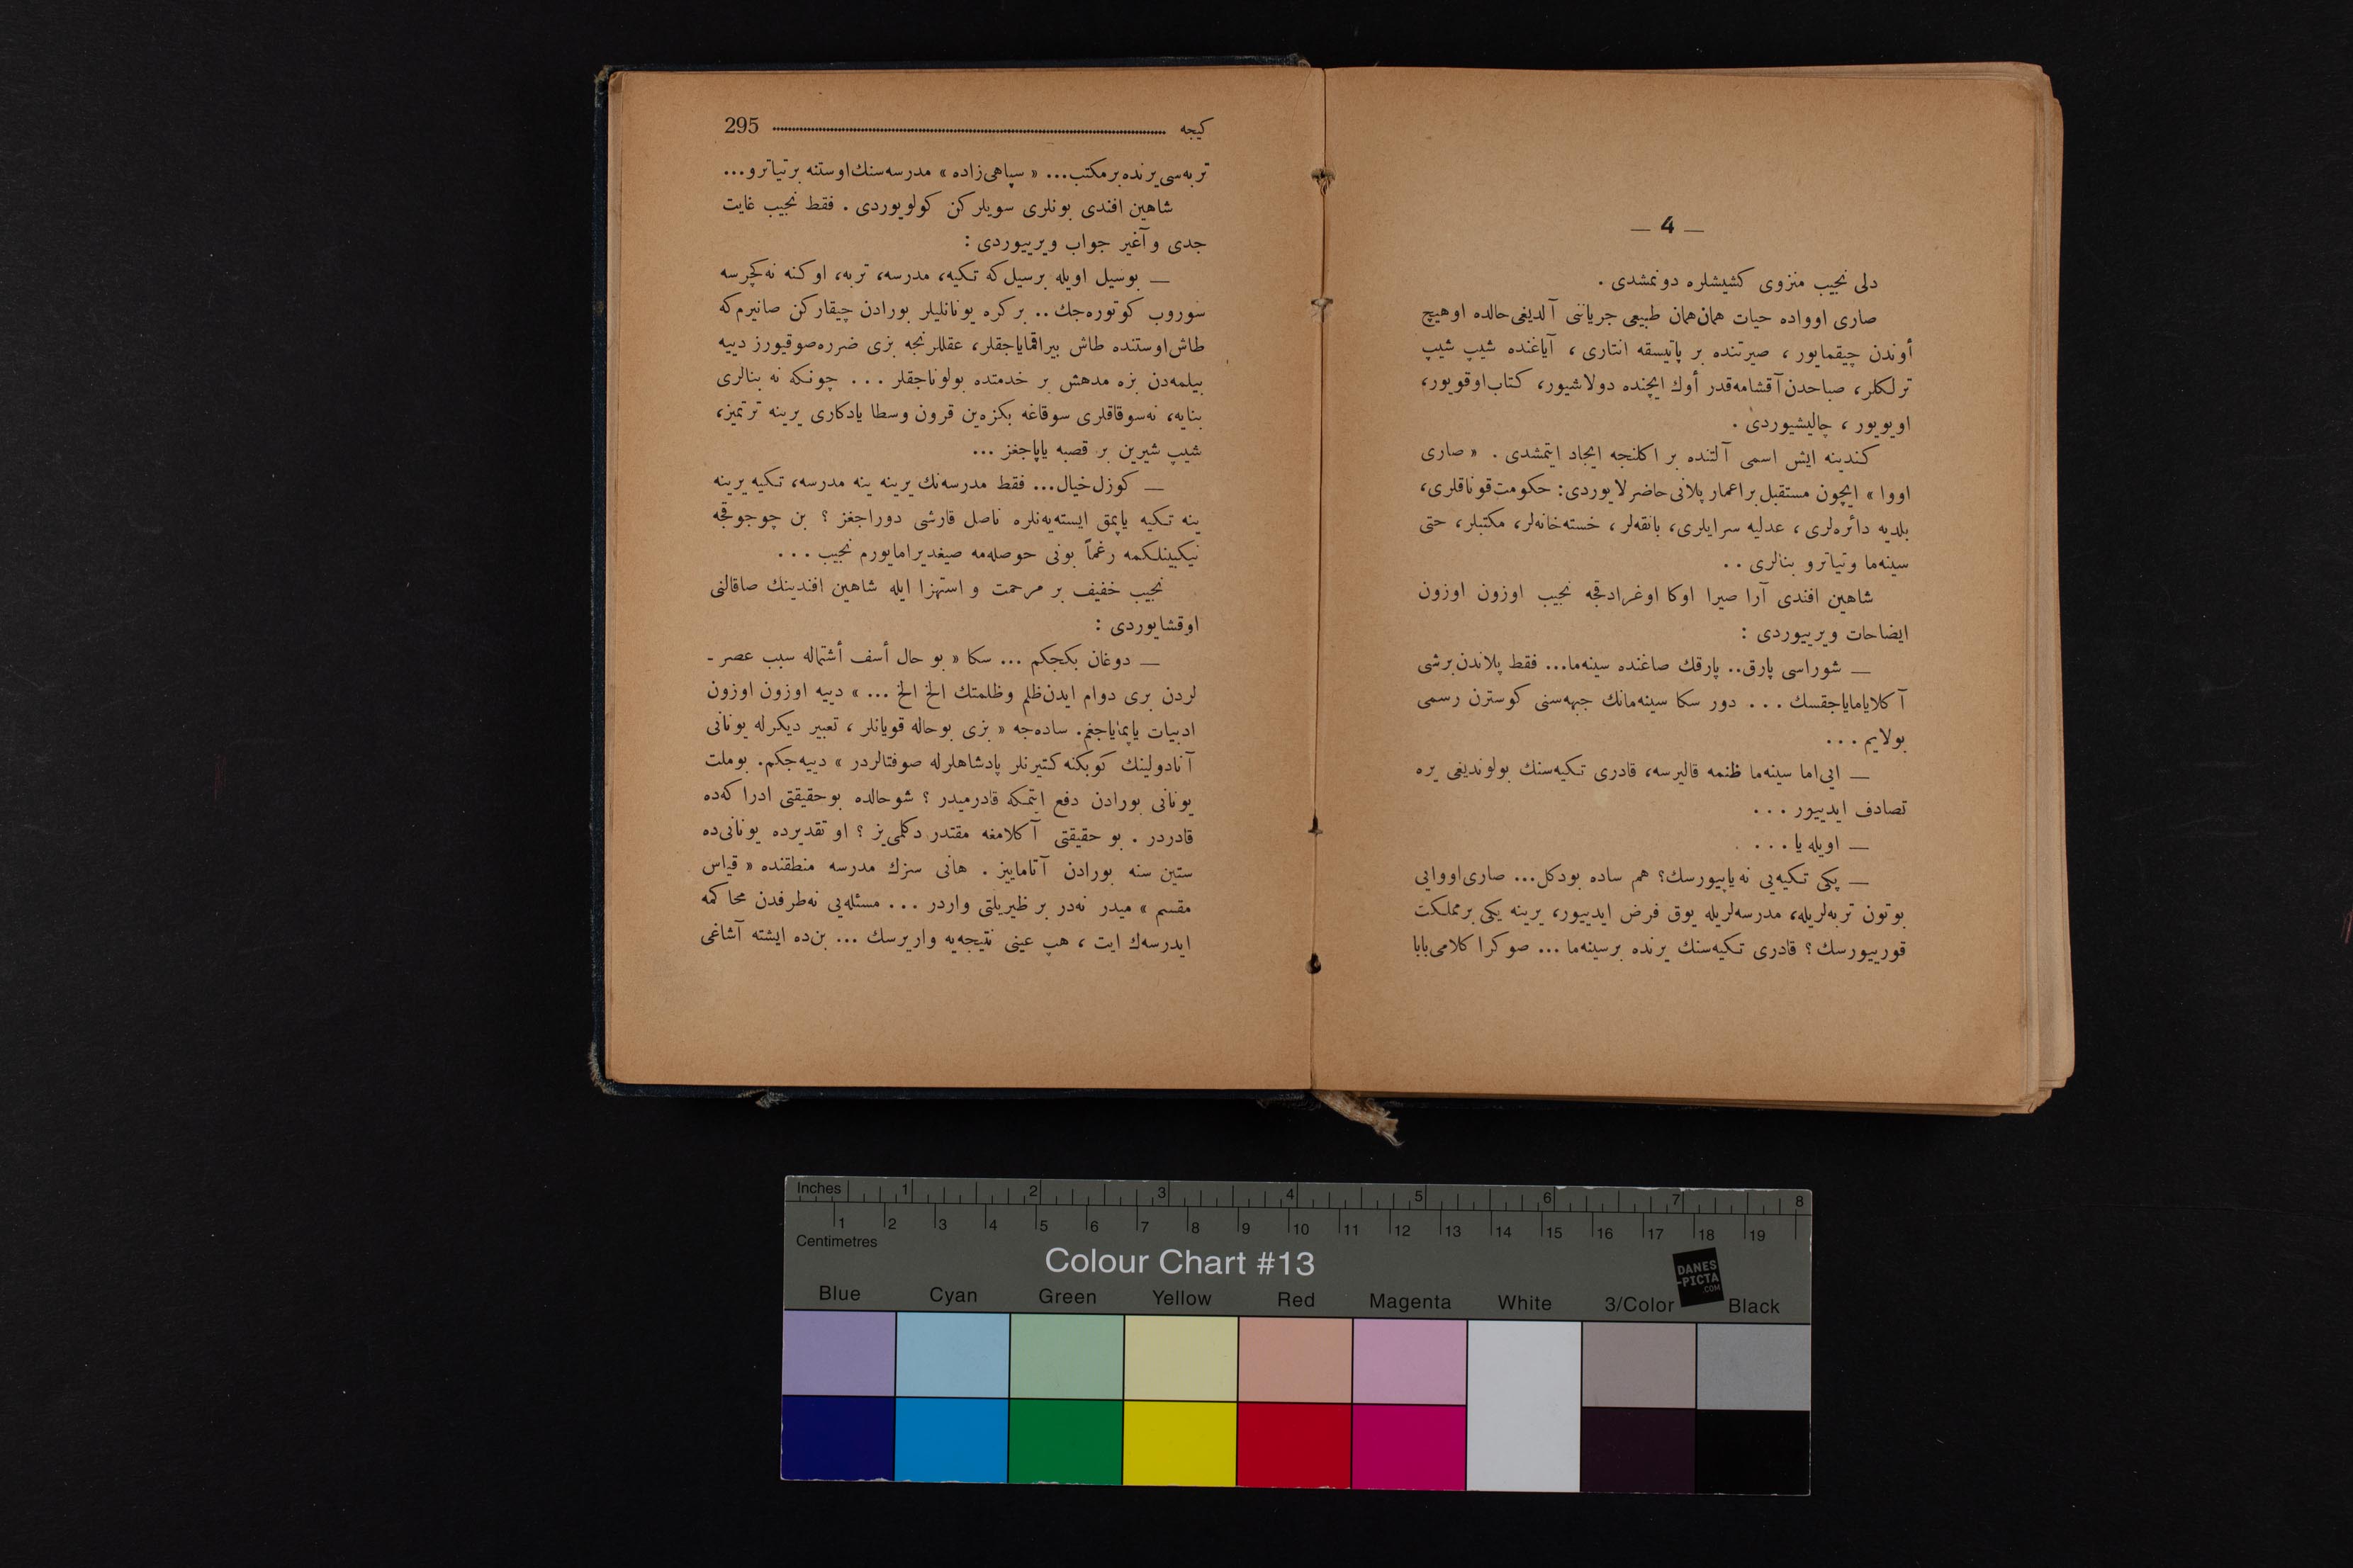 — 4 —
دلی نجیب منزوی کشیشلره دونمشدی .
صاری اوواده حیات همان‌همان طبیعی جریاننی آلدیغی‌حالده اوهیچ
أوندن چیقمایور ، صیرتنده بر پاتیسقه انتاری ، آیاغنده شیپ شیپ
ترلکلر، صباحدن‌آقشامه‌قدر أوك ایچنده دولاشیور، کتاب‌اوقویور،
اویویور ، چالیشیوردی .
کندینه ایش اسمی آلتنده بر اکلنجه ایجاد ایتمشدی . « صاری
اووا » ایچون مستقبل براعمار پلانی‌حاضرلایوردی: حکومت‌قوناقلری،
بلدیه دائره‌لری، عدلیه سرایلری، بانقه‌لر ، خسته‌خانه‌لر، مکتبلر، حتی
سینه‌ما وتیاترو بنالری . .
شاهین افندی آرا صیرا اوکا اوغرادقجه نجیب اوزون اوزون
ایضاحات ویرییوردی :
— شوراسی پارق.. پارقك صاغنده سینه‌ما... فقط پلاندن‌برشی
آکلایامایاجقسك . . . دور سکا سینه‌مانك جبهه‌سنی کوسترن رسمی
بولایم . . .
— ایی‌اما سینه‌ما ظنمه قالیرسه، قادری تکیه‌سنك بولوندیغی یره
تصادف ایدییور . . .
— اویله یا . . .
— پکی تکیه‌یی نه‌یاپییورسك؟ هم ساده بودکل... صاری‌اووایی
بوتون تربه‌لریله، مدرسه‌لریله یوق فرض ایدییور، یرینه یکی برمملکت
قورییورسك؟ قادری تکیه‌سنك یرنده برسینه‌ما ... صوکرا کلامی‌بابا
کیجه 295
تربه‌سی‌یرنده‌برمکتب... « سپاهی‌زاده » مدرسه‌سنك‌اوستنه برتیاترو...
شاهین افندی بونلری سویلرکن کولویوردی . فقط نجیب غایت
جدی وآغیر جواب ویرییوردی :
— بوسیل اویله برسیل‌که تکیه، مدرسه، تربه، اوکنه نه‌کچرسه
سوروب کوتوره‌جك .. برکره یونانلیلر بورادن چیقارکن صانیرم‌که
طاش‌اوستنده طاش بیراقمایاجقلر، عقللرنجه بزی ضرره‌صوقیورز دییه
بیلمه‌دن بزه مدهش بر خدمتده بولوناجقلر . . . چونکه نه بنالری
بنایه، نه‌سوقاقلری سوقاغه بکزه‌ین قرون وسطا یادکاری یرینه ترتمیز،
شیپ شیرین بر قصبه یاپاجغز ...
— کوزل‌خیال... فقط مدرسه‌نك یرینه ینه مدرسه، تکیه یرینه
ینه تکیه یاپمق ایسته‌یه‌نلره ناصل قارشی دوراجغز ؟ بن چوجوقجه
نیکبینلکمه رغماً بونی حوصله‌مه صیغدیرامایورم نجیب . . .
نجیب خفیف بر مرحمت و استهزا ایله شاهین افندینك صاقالنی
اوقشایوردی :
— دوغان بکجکم ... سکا « بو حال أسف أشتماله سبب عصر ـ
لردن بری دوام ایدن‌ظلم وظلمتك الخ الخ ... » دییه اوزون اوزون
ادبیات یاپمایاجغم. ساده‌جه « بزی بوحاله قویانلر ، تعبیر دیکرله یونانی
آنادولینك کوبکنه کتیرنلر پادشاهلرله صوفتالردر » دییه‌جکم. بوملت
یونانی بورادن دفع ایتمکه قادرمیدر ؟ شوحالده بوحقیقتی ادراکه‌ده
قادردر . بو حقیقتی آکلامغه مقتدر دکلمی‌یز ؟ او تقدیرده یونانی‌ده
ستین سنه بورادن آتاماییز . هانی سزك مدرسه منطقنده « قیاس
مقسم » میدر نه‌در بر ظیریلتی واردر . . . مسئله‌یی نه‌طرفدن محاکمه
ایدرسه‌ك ایت ، هپ عینی نتیجه‌یه واریرسك ... بن‌ده ایشته آشاغی
Inches 1 2 3 4 5 6 7 8
1 2 3 4 5 6 7 8 9 10 11 12 13 14 15 16 17 18 19
Centimetres
Colour Chart #13
DANES
-PICTA
.COM
Blue Cyan Green Yellow Red Magenta White 3/Color Black